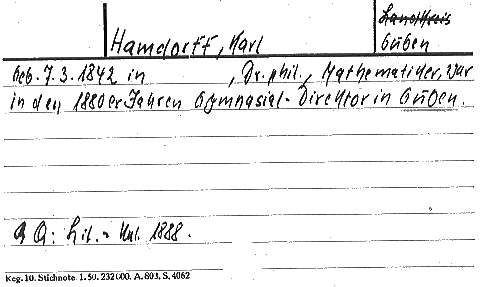 Landkreis
Hamdorff, Karl Guben
Geb. 7.3.1842 in , Dr. phil., Mathematiker, war
in den 1880er Jahren Gymnasial-Direktor in Guben.
Q: Lit.-Kal. 1888.
Keg. 10. Stichnote. 1. 50. 232000. A. 803. S. 4062